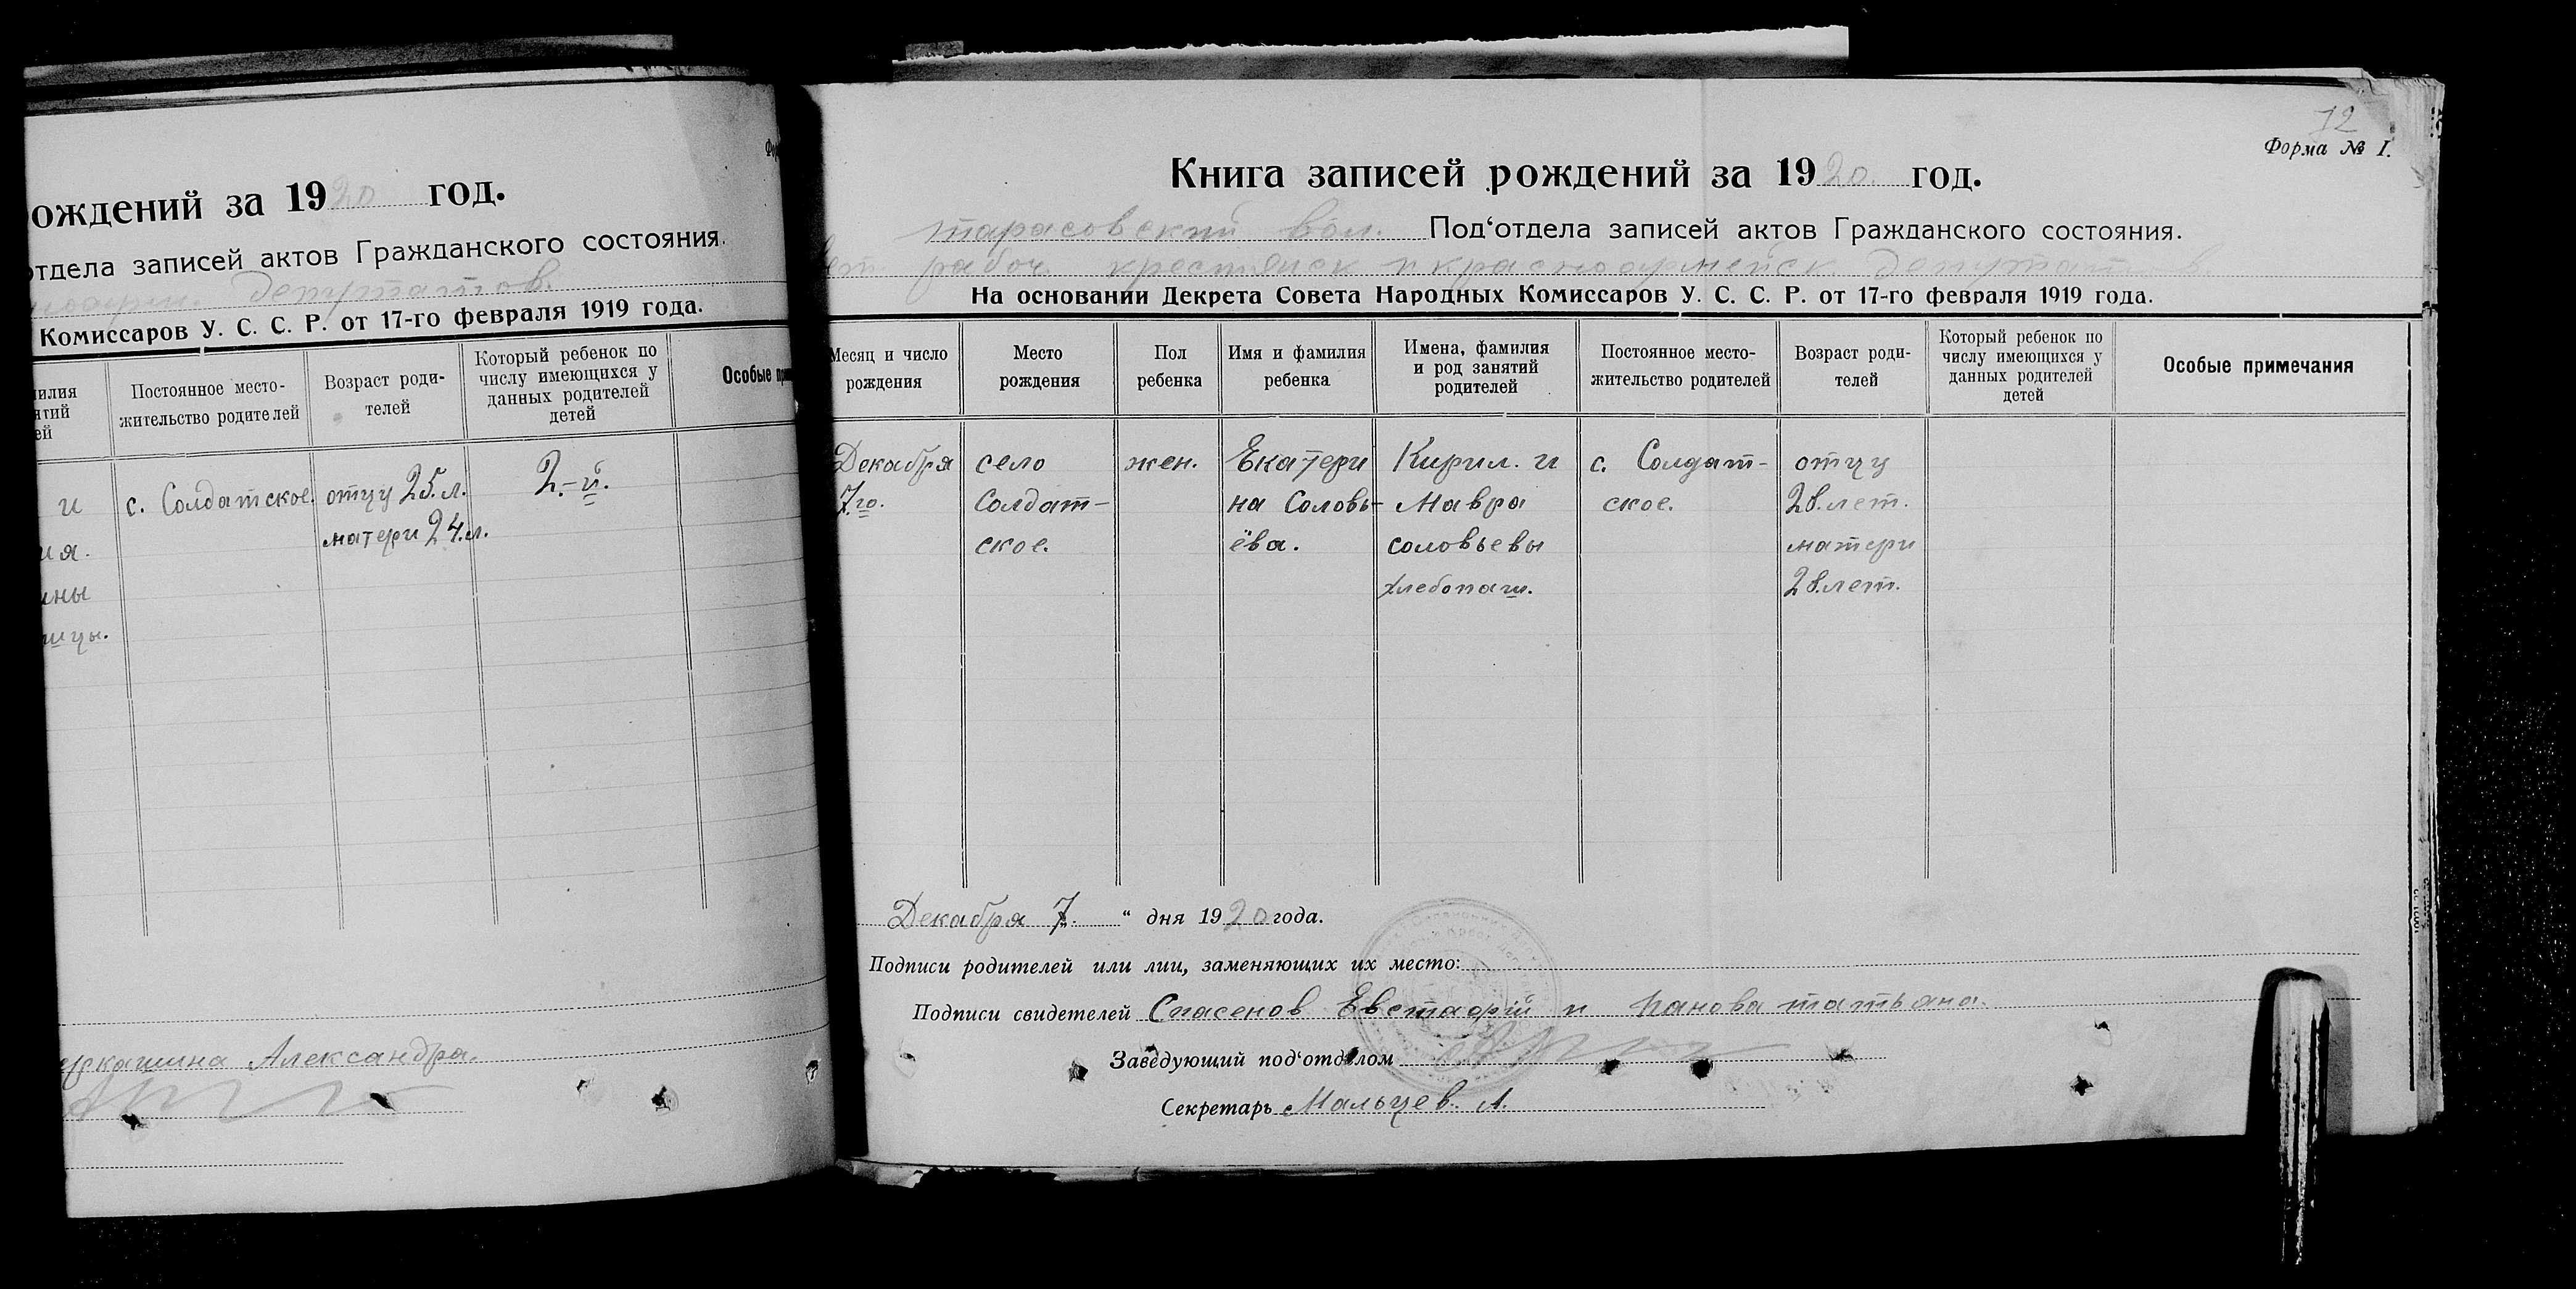 ождений за 1920 год.
отдела записей актов Гражданского состояния.
депутатов.
Комиссаров У. С. С. Р. от 17-го февраля 1919 года.
Постоянное место-
жительство родителей
Возраст роди-
телей
Который ребенок по
числу имеющихся у
данных родителей
детей
Особые
и
ия.
ины
ицы.
с. Солдатское.
отцу 25.л.
матери 24.л.
2.-й.
еркашина Александра.
12
Форма № I.
Книга записей рождений за 1920 год.
тарасовский вол. Под‘отдела записей актов Гражданского состояния.
рабоч. крестянск и красноармейск депутатов.
На основании Декрета Совета Народных Комиссаров У. С. С. Р. от 17-го февраля 1919 года.
Месяц и число
рождения
Место
рождения
Пол
ребенка
Имя и фамилия
ребенка
Имена, фамилия
и род занятий
родителей
Постоянное место-
жительство родителей
Возраст роди-
телей
Который ребенок по
числу имеющихся у
данных родителей
детей
Особые примечания
Декабря
7.го.
село
Солдат-
ское.
жен.
Екатери
на Соловь-
ёва.
Кирил. и
Мавра
соловьевы
хлебопаш.
с. Солдат-
ское.
отцу
28.лет.
матери
28.лет.
Декабря 7. “ дня 1920 года.
Подписи родителей или лиц, заменяющих их место:
Подписи свидетелей Спасенов Евстафій и Панова татьана.
Заведующий под‘отделом
Секретарь Мальцев. А.